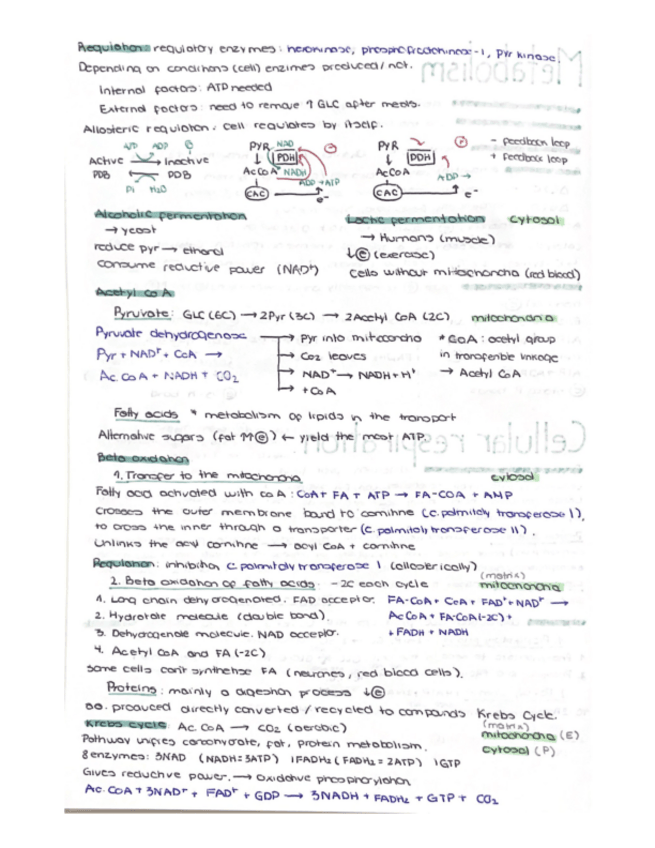 Regulation: regulatory enzymes: hexokinase, phosphofructokinase-1, pyr kinase.
Depending on conditions (cell) enzimes produced/not.
Internal factors: ATP needed
External factors: need to remove ↑ GLC after meals.
Allosteric regulation: cell regulates by itself.
ATP ADP P
Active → Inactive
PDB ← PDB
Pi H2O
PYR NAD
↓ PDH
AcCoA NADH
ADP → ATP
CAC → e-
PYR
↓ PDH
AcCoA ADP →
CAC → e-
- feedback loop
+ feedback loop
Alcoholic fermentation
→ yeast
reduce pyr → ethanol
consume reductive power (NAD+)
Lactic fermentation cytosol
→ Humans (muscle)
↓ⓔ (exercise)
Cells without mitochondria (red blood)
Acetyl CoA
Pyruvate: GLC (6C) → 2Pyr (3C) → 2Acetyl CoA (2C) mitochondria
Pyruvate dehydrogenase → Pyr into mitocondria * CoA: acetyl group
Pyr + NAD+ + CoA → → CO2 leaves in transferible linkage
Ac.CoA + NADH + CO2 → NAD+ → NADH + H+ → Acetyl CoA
→ + CoA
Fatty acids * metabolism of lipids in the transport
Alternative sugars (fat ↑↑ⓔ) ← yield the most ATP.
Beta oxidation
1. Transfer to the mitochondria cytosol
Fatty acid activated with coA: CoA + FA + ATP → FA-COA + AMP
Crosses the outer membrane bound to carnitine (c. palmitoly transferase I),
to cross the inner through a transporter (c. palmitoly transferase II).
Unlinks the acyl carnitine → acyl CoA + carnitine
Regulation: inhibition c. palmitoly transferase I (allosterically)
2. Beta oxidation of fatty acids. -2C each cycle (matrix) mitochondria
1. Long chain dehydrogenated. FAD acceptor. FA-CoA + CoA + FAD+ + NAD+ →
2. Hydrotate molecule (double bond). AcCoA + FA·CoA(-2C) +
3. Dehydrogenate molecule. NAD acceptor. + FADH + NADH
4. Acetyl CoA and FA (-2C)
Some cells can't synthetise FA (neurones, red blood cells).
Proteins: mainly a digestion process ↓ⓔ
aa. produced directly converted / recycled to compounds Krebs Cycle.
Krebs cycle: Ac.CoA → CO2 (aerobic) (matrix)
Pathway unifies carbohydrate, fat, protein metabolism. mitochondria (E)
8 enzymes: 3NAD (NADH=3ATP) 1FADH2 (FADH2=2ATP) 1GTP cytosol (P)
Gives reductive power. → Oxidative phosphorylation
Ac.CoA + 3NAD+ + FAD+ + GDP → 3NADH + FADH2 + GTP + CO2
Metabolism
Cellular respiration: